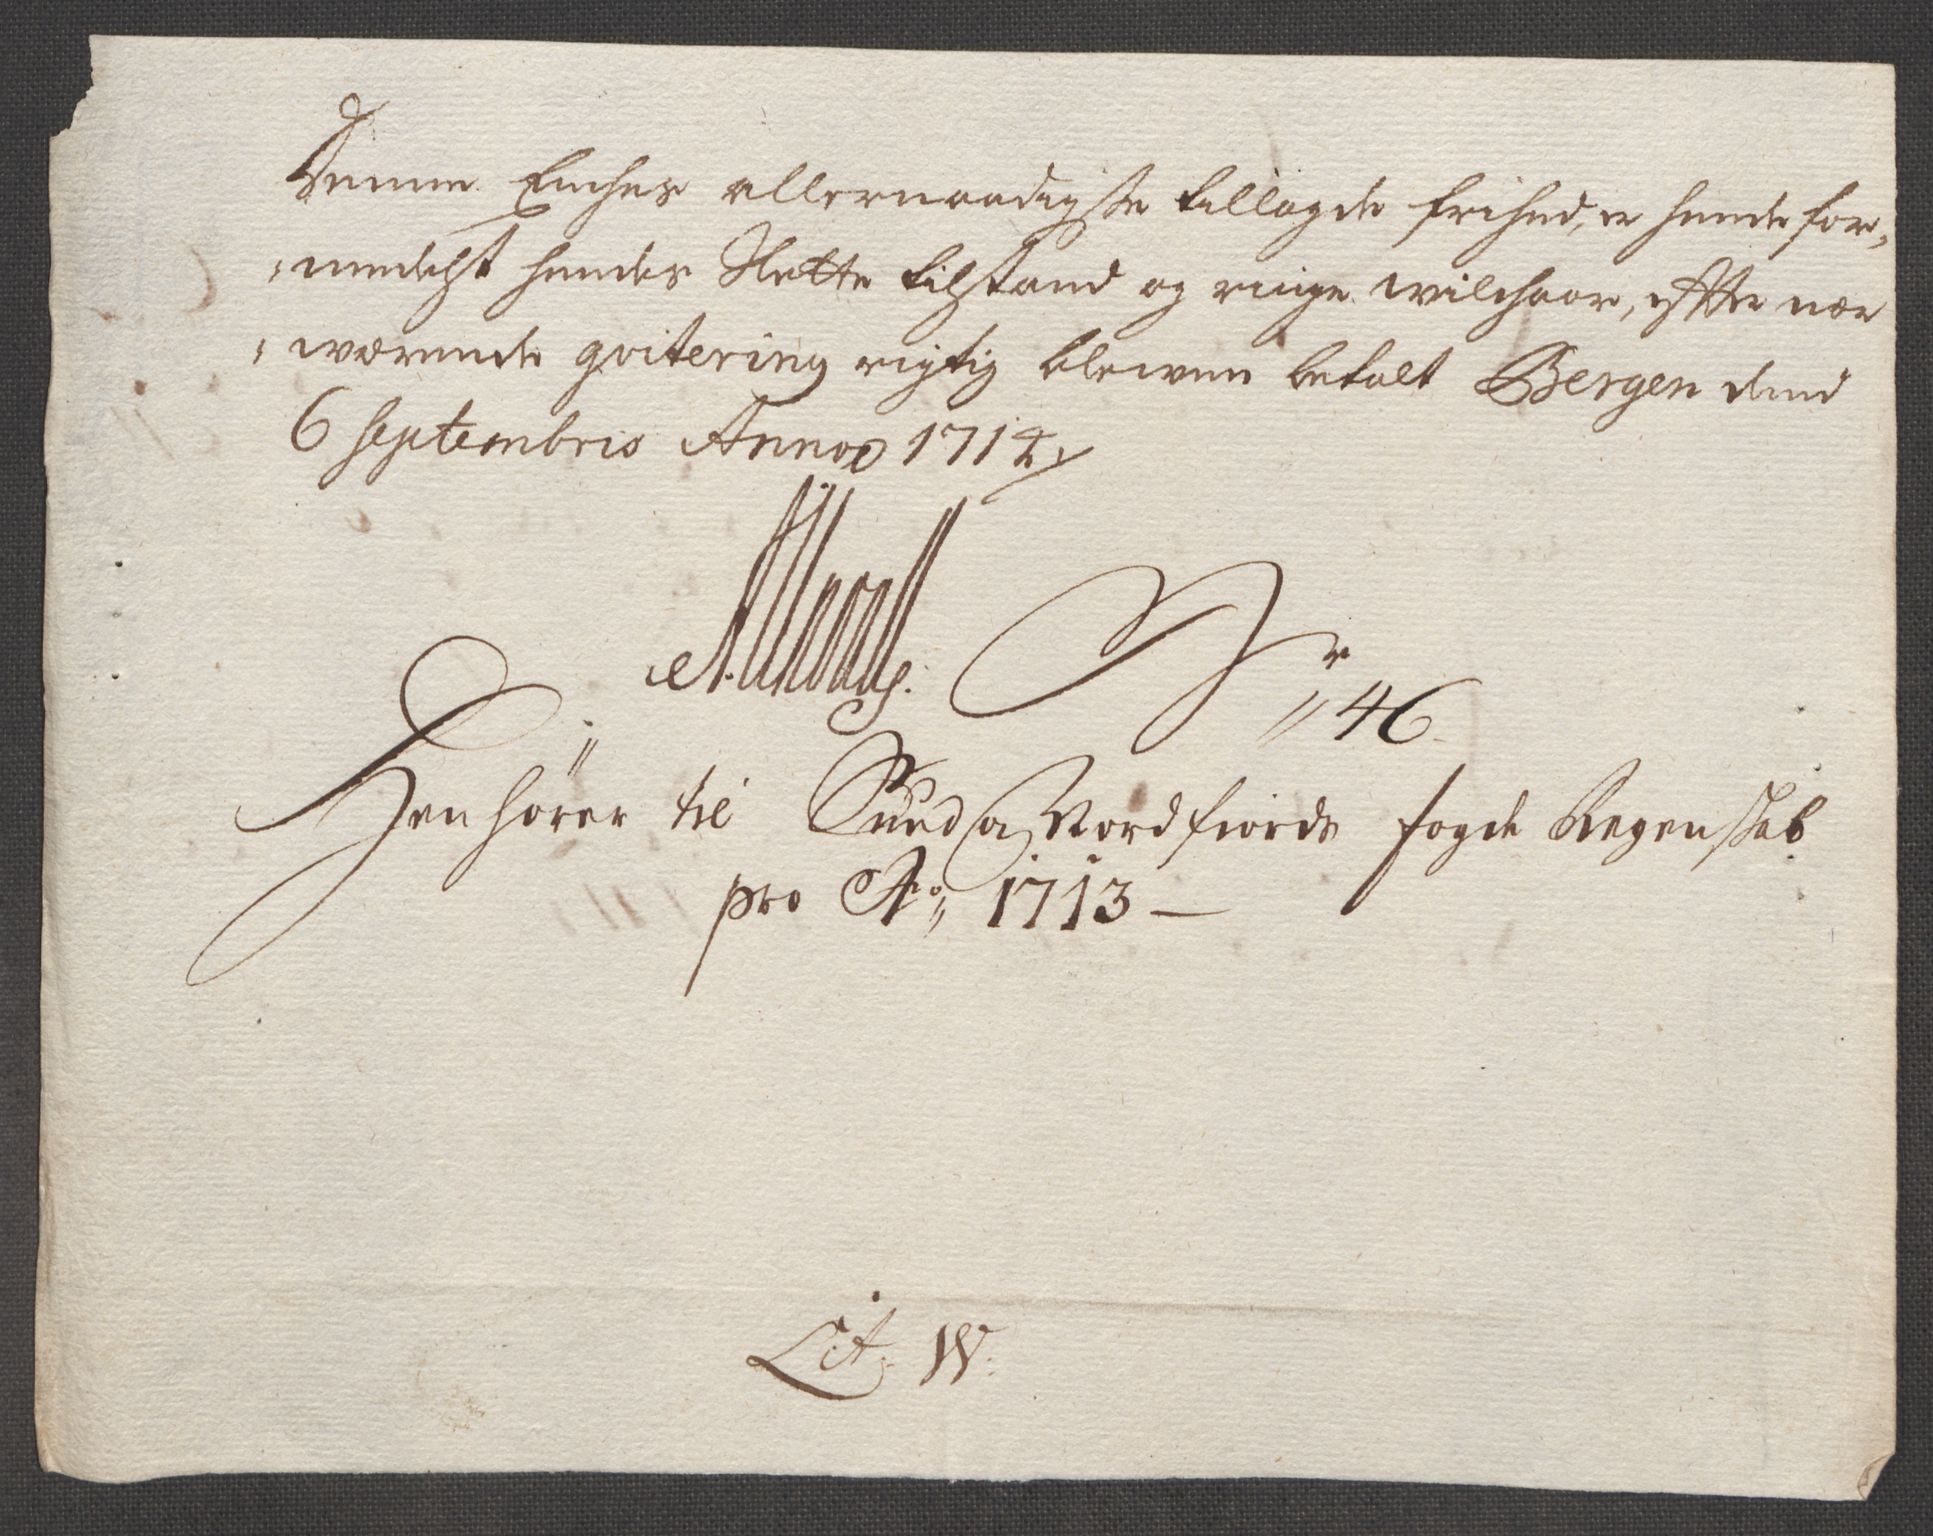 Denne Enches allernaadigste tillagde frihed, er hende for,
,medelst hendes Slette tilstand og ringe wilchaar, efter nær
,wærende qvitering rigtig blewen betalt Bergen dend
6 Septembris Anno 1714
Nr 46
Henhörer til Sund og Nordfiords fogde Regenskab
pro Ao 1713 —
Lit: W: